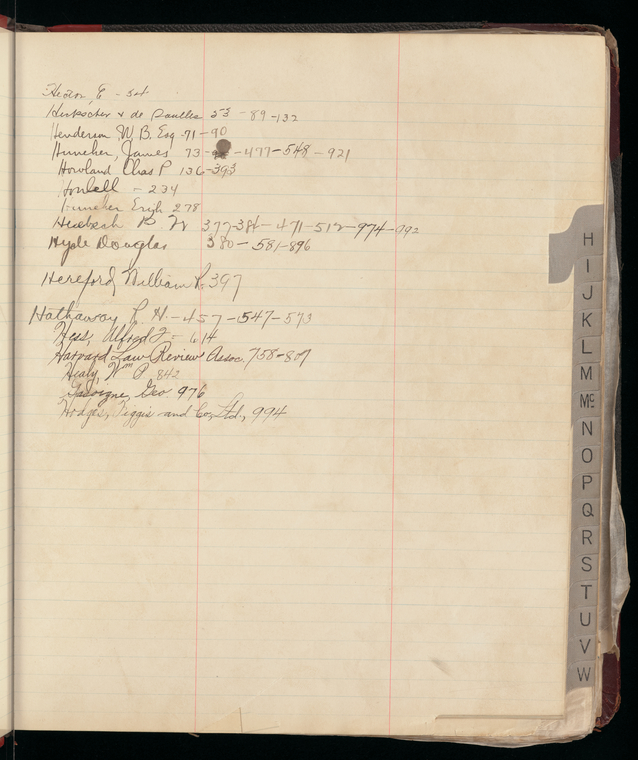 Hector, E - 34
& de Saulles 53 - 89 - 132
Henderson W. B. Esq - 71 - 90
Huneker, James 73 - - 477 - 548 - 921
Howland Chas P 136 - 393
- 234
Huneker Erik 278
377 - 384 - 471 - 512 - 974 - 992
Hyde Douglas 380 - 581 - 896
Hereford, William R. 397
Hathaway R. H. - 457 - 547 - 573
Hess, Alfred F - 614
Harvard Law Review Assoc. 758 - 807
Healy, Wm P 842
Geo 976
Hodges, Figgis and Co., Ltd., 994
H
I
J
K
L
M
Mc
N
O
P
Q
R
S
T
U
V
W